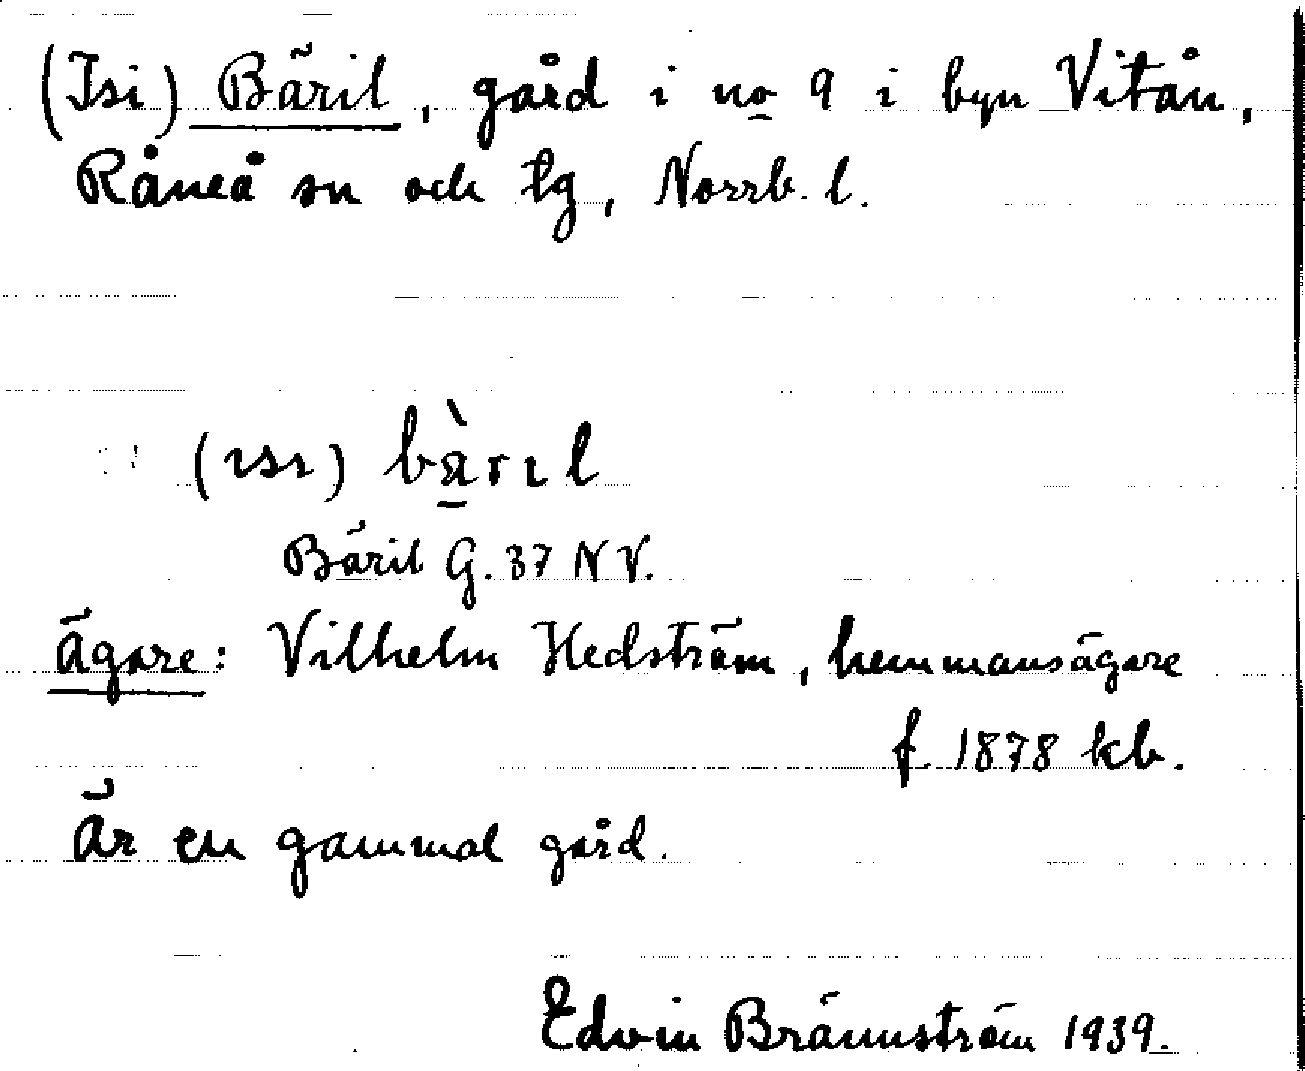 (Isi) Bäril, gård i no 9 i byn Vitån,
Råneå sn och tg, Norrb. l.
(ɪsɪ) bà̱rɪl
Bäril G. 37 N V.
ägare: Vilhelm Hedström, hemmansägare
f. 1878 kb.
Är en gammal gård.
Edvin Brännström 1939.